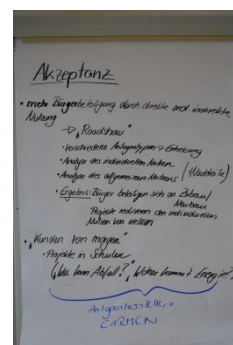 Akzeptanz
• mehr Bürgerbeteiligung durch direkte und indirekte
Nutzung
→ „Roadshow"
• verschiedene Anlagentypen →
• Analyse des individuellen Nutzens
• Analyse des allgemeinen Nutzens (Nachteile)
• Ergebnis: Bürger beteiligen sich an Zubau/
Neubau
Projekte den individuellen
Nutzen von
• „Kunden von morgen"
• Projekte in Schulen
Abfall?", „Woher kommt Energie?"
Anlagenhersteller +
CARMEN